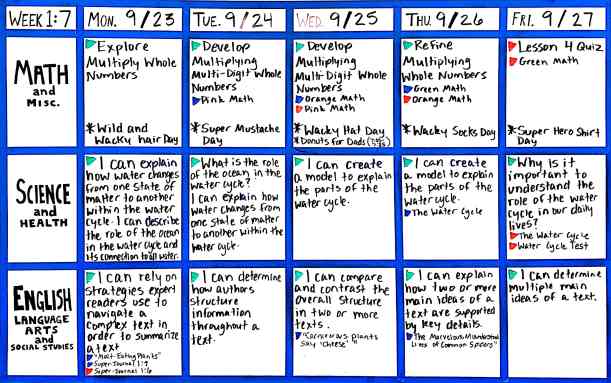 WEEK 1:7
MON. 9/23
TUE. 9/24
WED. 9/25
THU. 9/26
FRI. 9/27
MATH
and
MISC.
Explore
Multiply Whole
Numbers
* Wild and
Wacky hair Day
Develop
Multiplying
Multi-Digit Whole
Numbers
Pink Math
* Super Mustache
Day
Develop
Multiplying
Multi-Digit Whole
Numbers
Orange Math
Pink Math
* Wacky Hat Day
* Donuts for Dads
Refine
Multiplying
Whole Numbers
Green Math
Orange Math
* Wacky Socks Day
Lesson 4 Quiz
Green Math
* Super Hero Shirt
Day
SCIENCE
and
HEALTH
I can explain
how water changes
from one state of
matter to another
within the water
cycle. I can describe
the role of the ocean
in the water cycle and
its connection to all water.
What is the role
of the ocean in the
water cycle?
I can explain how
water changes from
one state of matter
to another within the
water cycle.
I can create
a model to explain
the parts of the
water cycle.
I can create
a model to explain
the parts of the
water cycle.
The Water Cycle
Why is it
important to
understand the
role of the water
cycle in our daily
lives?
The Water Cycle
Water Cycle Test
ENGLISH
LANGUAGE
ARTS
and
SOCIAL STUDIES
I can rely on
strategies expert
readers use to
navigate a
complex text in
order to summarize
a text
"Meat-Eating Plants"
Super Journal 1:7
Super Journal 1:6
I can determine
how authors
structure
information
throughout a
text.
I can compare
and contrast the
overall structure
in two or more
texts.
"Carnivorous plants
say 'cheese'"
I can explain
how two or more
main ideas of a
text are supported
by key details.
The Marvelous
Lives of Common Spiders"
I can determine
multiple main
ideas of a text.